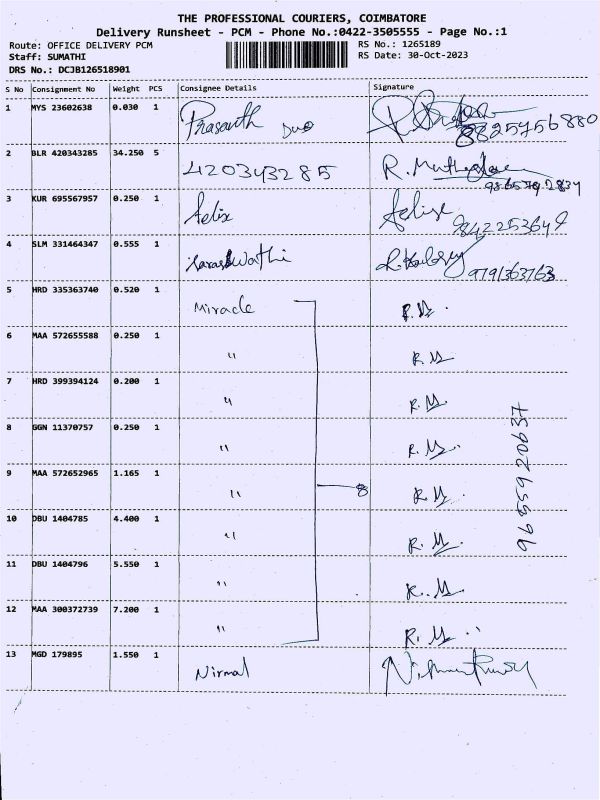 THE PROFESSIONAL COURIERS, COIMBATORE
Delivery Runsheet - PCM - Phone No.:0422-3505555 - Page No.:1
Route: OFFICE DELIVERY PCM
RS No.: 1265189
Staff: SUMATHI
RS Date: 30-Oct-2023
DRS No.: DCJB126518901
S No Consignment No Weight PCS Consignee Details Signature
1 MYS 23602638 0.030 1 Prasanth Duo
8825756880
2 BLR 420343285 34.250 5 420343285 R.
3 KUR 695567957 0.250 1 Felix Felix
9842253649
4 SLM 331464347 0.555 1 Saraswathi
9791363763
5 HRD 335363740 0.520 1 Miracle R.M.
6 MAA 572655588 0.250 1 " R.M
7 HRD 399394124 0.200 1 " R.M.
8 GGN 11370757 0.250 1 " R.M..
9 MAA 572652965 1.165 1 " 8 R.M.
10 DBU 1404785 4.400 1 " R.M.
11 DBU 1404796 5.550 1 " R.M.
12 MAA 300372739 7.200 1 " R.M..
9655920637
13 MGD 179895 1.550 1 Nirmal